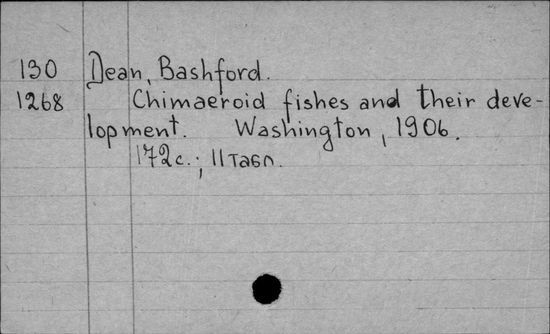 130 Dean, Bashford.
1268 Chimaeroid fishes and their deve-
lopment. Washington, 1906.
172с.; 11 табл.